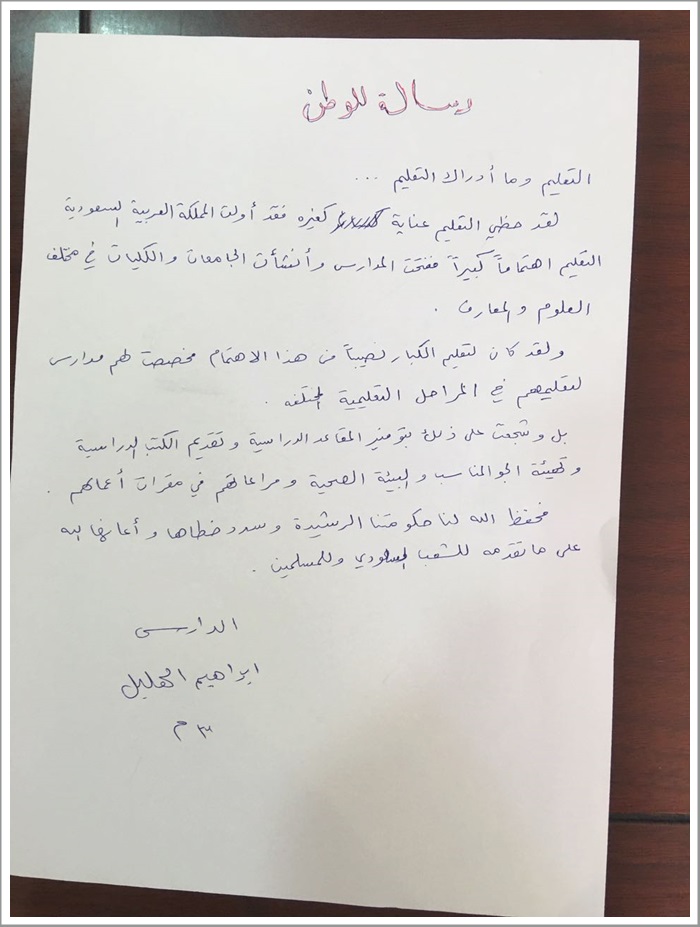 رسالة للوطن
التعليم وما أدراك التعليم ...
لقد حظي التعليم عناية كغيره فقد أولت المملكة العربية السعودية
التعليم اهتماماً كبيراً ففتحت المدارس وأنشأت الجامعات والكليات في مختلف
العلوم والمعارف .
ولقد كان لتعليم الكبار نصيباً من هذا الاهتمام فخصصت لهم مدارس
لتعليمهم في المراحل التعليمية المختلفه .
بل وشجعت على ذلك بتوفير المقاعد الدراسية وتقديم الكتب الدراسية
وتهيئة الجو المناسب والبيئة الصحية ومراعاتهم في مقرات أعمالهم .
فحفظ الله لنا حكومتنا الرشيدة وسدد خطاها وأعانها الله
على ما تقدمه للشعب السعودي وللمسلمين .
الدارس
ابراهيم الهليل
م٣